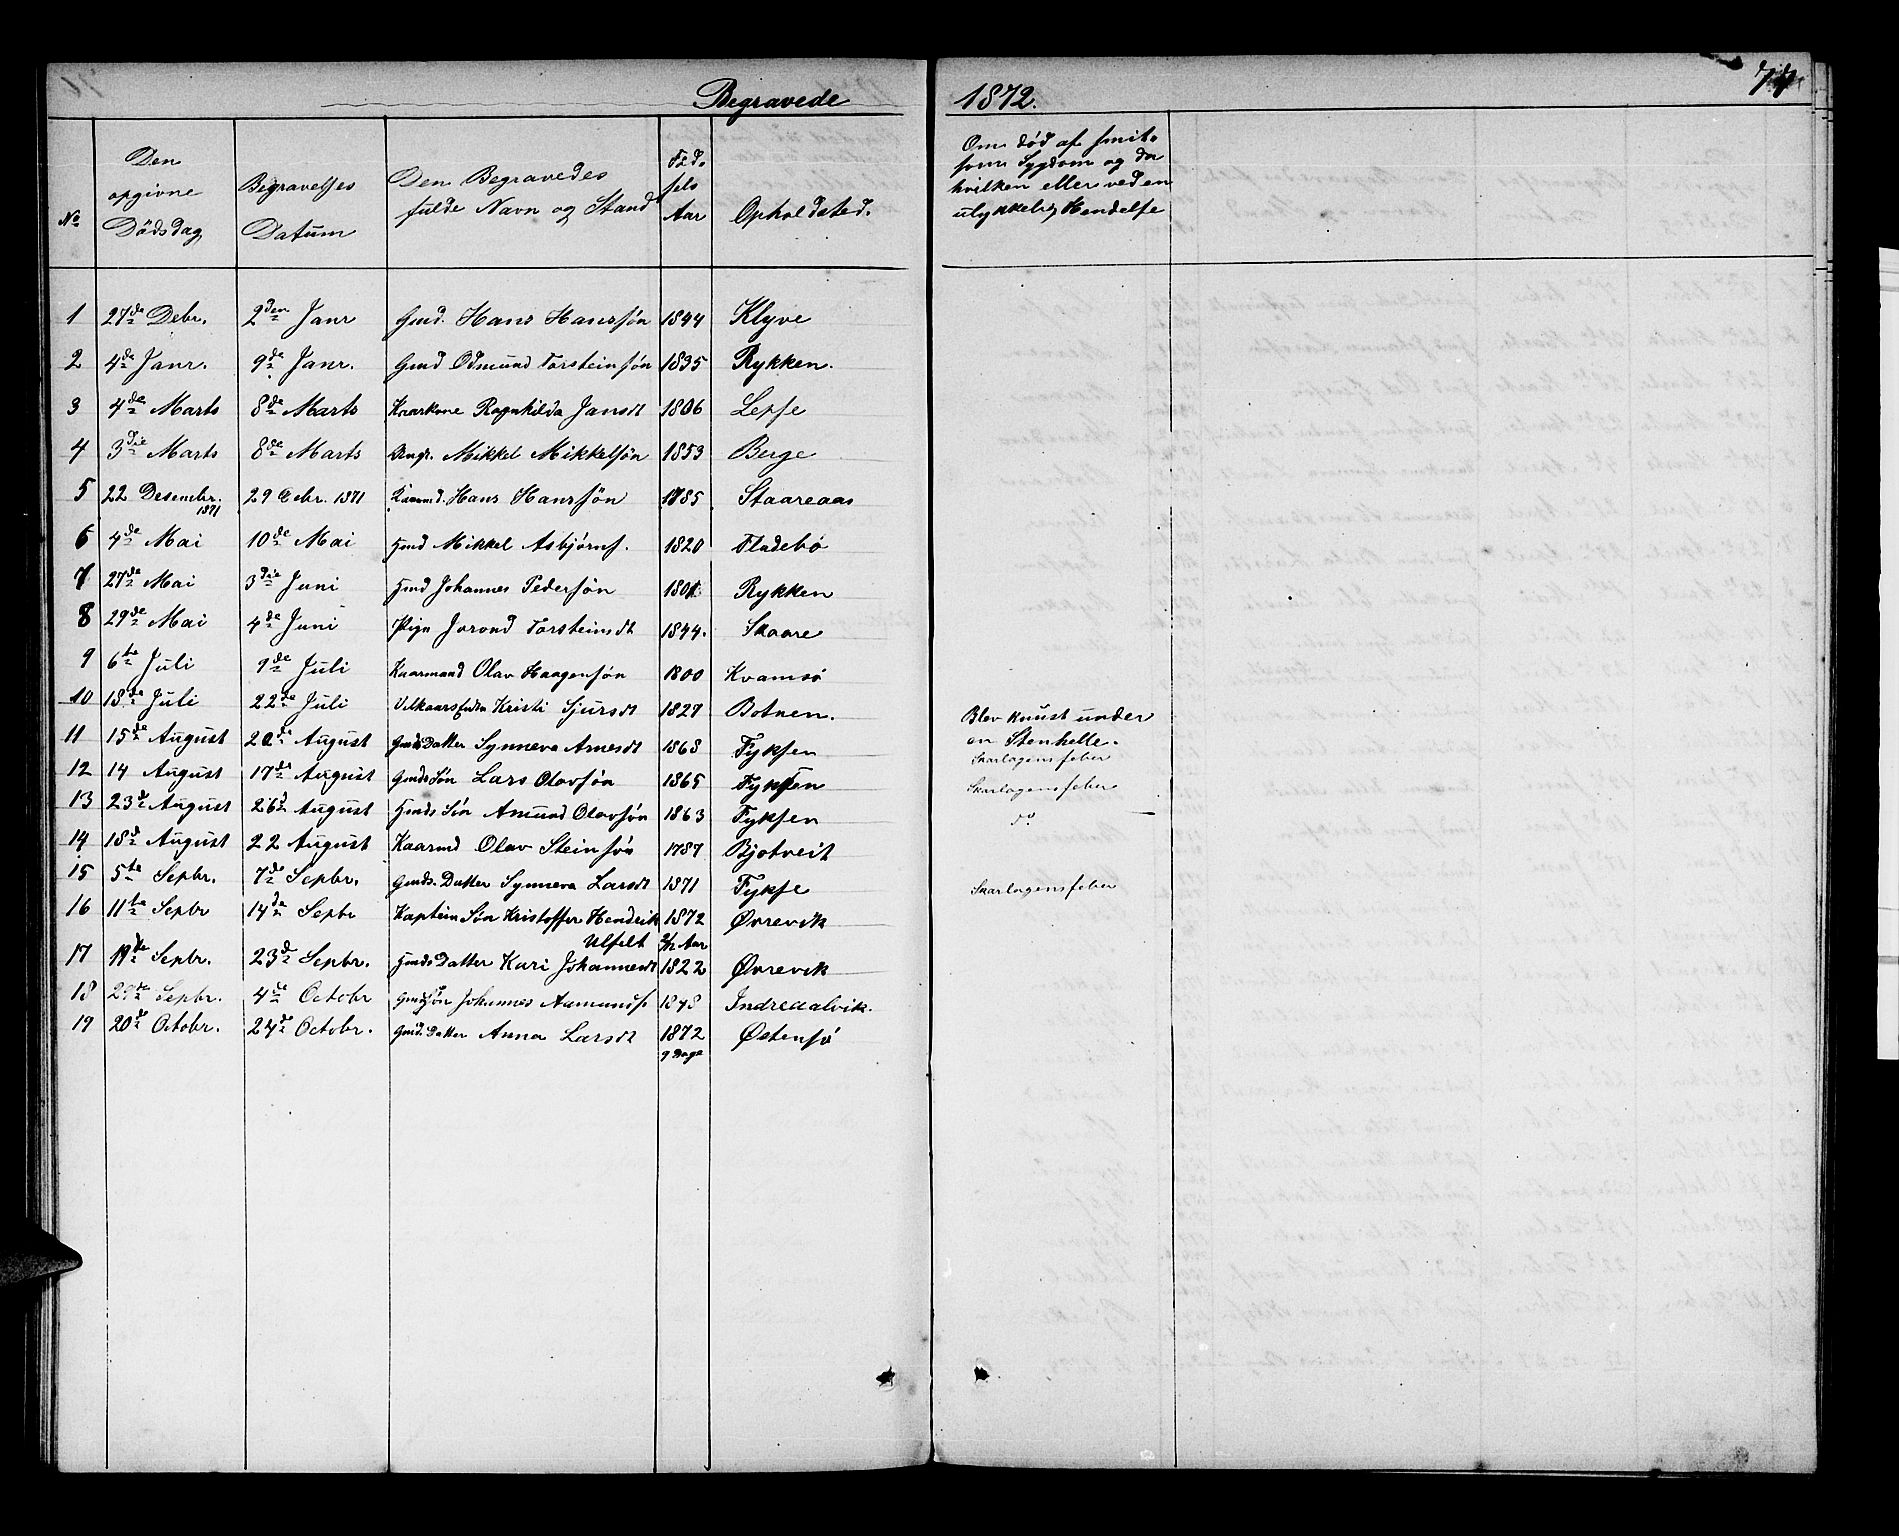 Begravede 1872.
No Den opgivne Dödsdag Begravelses Datum Den Begravedes fulde Navn og Stand Föd. sels Aar Opholdsted. Om död af smit. som Sygdom og da hvilken eller ved en ulykkelig Hendelse
1 27de Debr. 2den Janr Gmd. Hans Hanssøn 1844 Klyve
2 4de Janr. 9de Janr. Gmd Odmund Torsteinsøn 1835 Rykken.
3 4de Marts 8de Marts Kaarkone Ragnhilda Jansdt 1806 Lepse
4 3die Marts 8de Marts Ungk. Mikkel Mikkelsøn 1853 Berge
5 22 Desembr. 1871 29 Debr. 1871 Kaarmd. Hans Hanssøn 1785 Staareaas
6 4de Mai 10de Mai Hmd Mikkel Asbjørns. 1820 Fladebø
7 27de Mai 3die Juni Hmd Johannes Pedersøn 1801 Rykken
8 29de Mai 4de Juni Pige Jorond Torsteinsdt 1844. Skaare
9 6te Juli 9de Juli Kaarmand Olav Haagensøn 1800 Kvamsø
10 18de Juli 22de Juli Vilkaarsenka Kristi Sjursdt 1827 Botnen. Blev knust under
11 15de August 20de August Gmds Datter Synneva Arnesdt 1868 Fyksen en Stenhelle. Skarlagensfeber
12 14 August 17de August Gmds Søn Lars Olavsøn 1865 Fyksen Skarlagensfeber
13 23de August 26d August Hmds Søn Amund Olavsøn 1863 Fyksen do
14 18d August 22 August Kaarmd Olav Steinsøn 1787 Bjotveit
15 5te Sepbr. 7de Sepbr. Gmds. Datter Synneva Larsdt 1871 Fykse Skarlagensfeber
16 11te Sepbr 14de Sepbr Kaptein Søn Kristoffer Hendrik 1872 Øvrevik
Ulfelt 2/12 Aar
17 19de Sepbr. 23d Sepbr. Hmds Datter Kari Johannesdt 1822 Øvrevik
18 29de Sepbr. 4de Octobr Gmds Søn Johannes Aamunds. 1848 Indreaalvik.
19 20d Octobr. 24de Octobr. Gmds. Datter Anna Larsdt 1872 Østensø
9 Dage